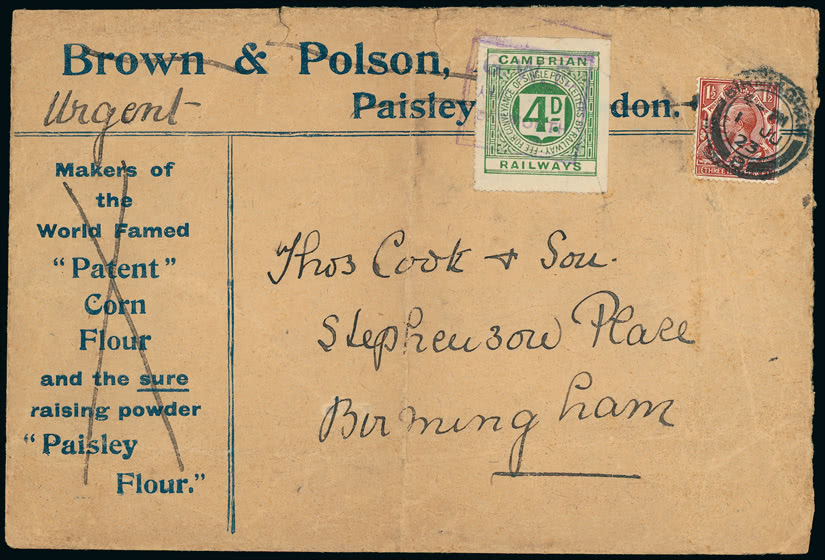 Brown & Polson,
Urgent
Paisley
don.
CAMBRIAN
FEE FOR CONVEYANCE OF SINGLE POST LETTERS BY RAILWAY
4D
RAILWAYS
1½ 1½
THREE
BIRMINGHAM
1 JU
23
Makers of
the
World Famed
"Patent"
Corn
Flour
and the sure
raising powder
"Paisley
Flour."
Thos Cook & Son.
Stephenson Place
Birmingham